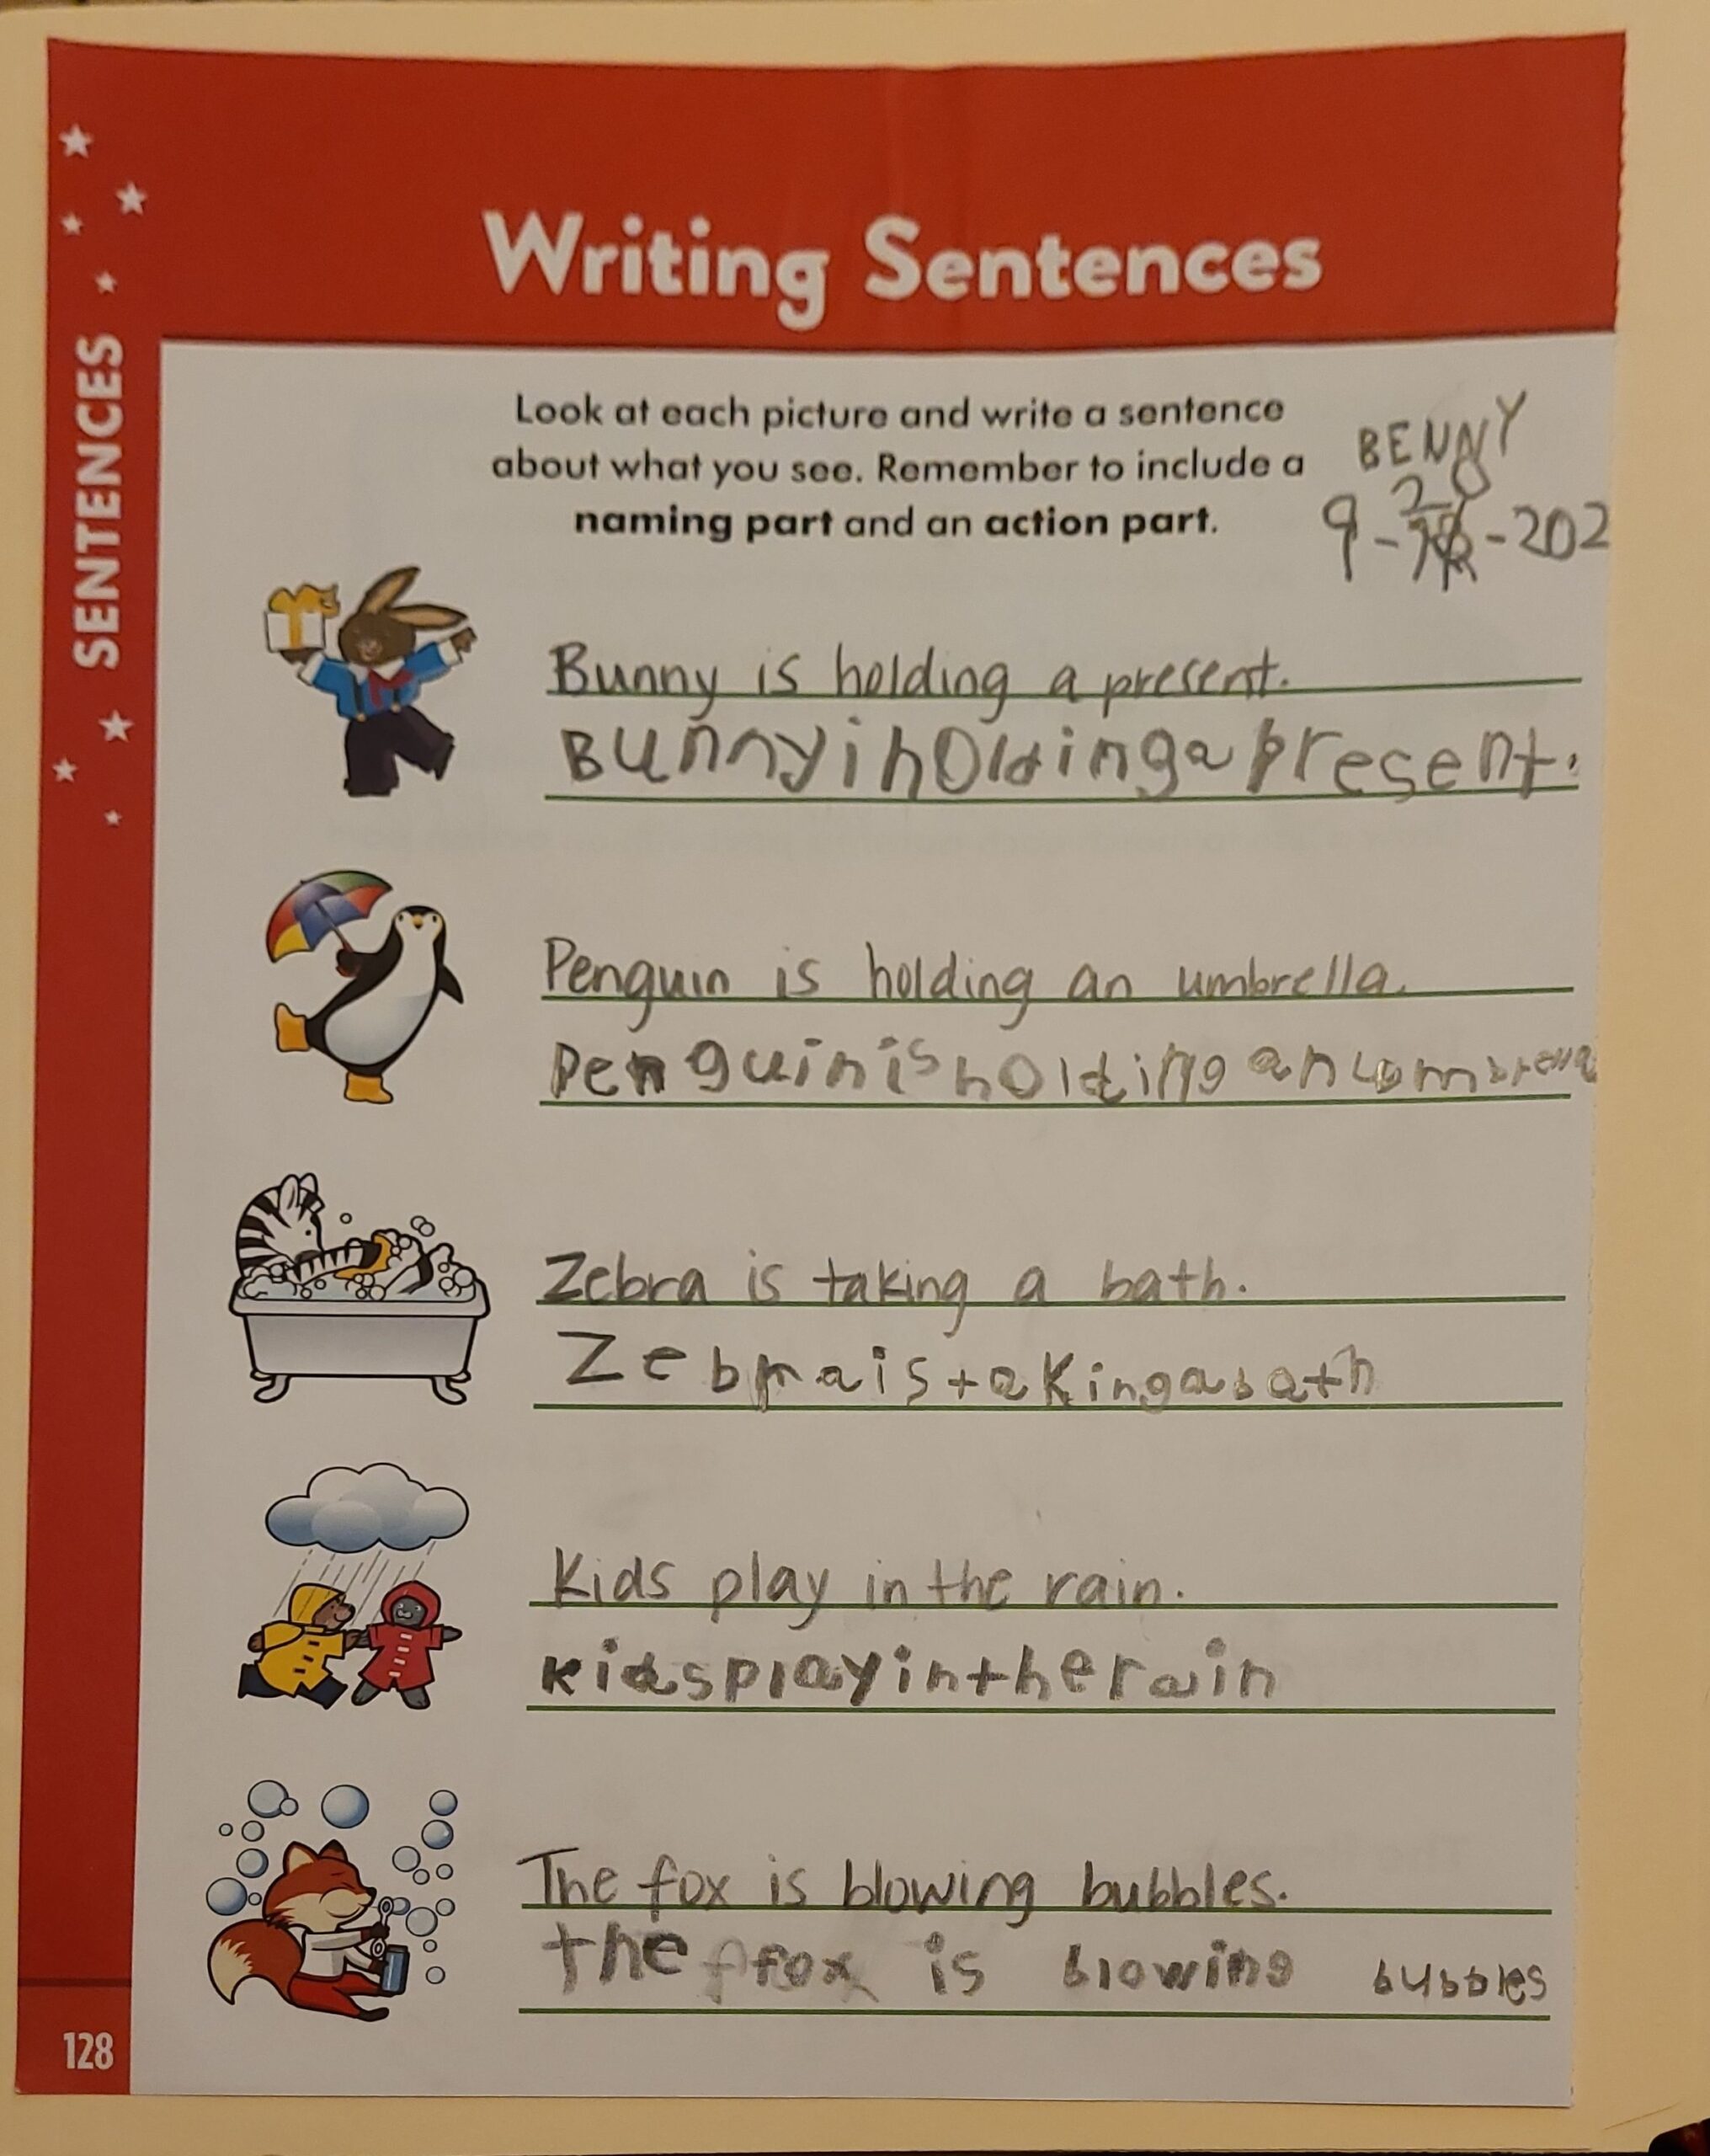 Writing Sentences
SENTENCES
Look at each picture and write a sentence
about what you see. Remember to include a
naming part and an action part.
BENNY
9-20-202
Bunny is holding a present.
Bunnyiholdingapresent.
Penguin is holding an umbrella.
Penguinisholding anumbrella
Zebra is taking a bath.
Zebraistakingabath
Kids play in the rain.
kidsplayintherain
The fox is blowing bubbles.
the fox is blowing bubbles
128